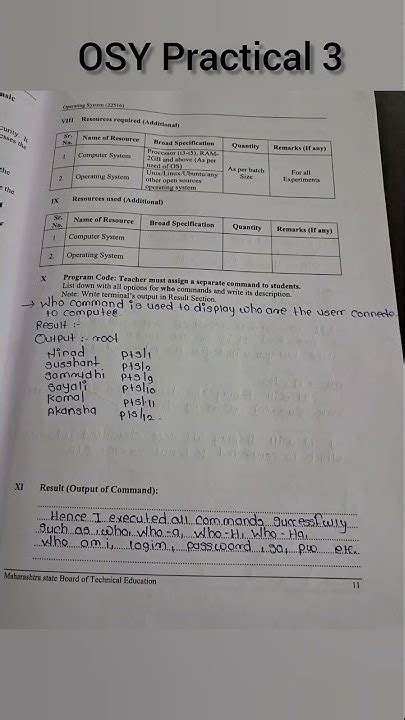 OSY Practical 3
Operating System (22516)
VIII Resources required (Additional)
Sr. No. Name of Resource Broad Specification Quantity Remarks (If any)
1 Computer System Processor (i3-i5), RAM-2GB and above (As per need of OS) As per batch Size For all Experiments
2. Operating System Unix/Linux/Ubuntu/any other open sources operating system
IX Resources used (Additional)
Sr. No. Name of Resource Broad Specification Quantity Remarks (If any)
1 Computer System
2. Operating System
X Program Code: Teacher must assign a separate command to students.
List down with all options for who commands and write its description.
Note: Write terminal's output in Result Section.
→ Who command is used to display who are the user connecte
to computer.
Result :-
Output :- root
Ninad pts/1
Susshant pts/2
Sammydhi pts/9
Sayali pts/10
Komal pts/11
Akansha pts/12.
XI Result (Output of Command):
Hence I executed all commands successfully
such as, who, who-a, who-H, Who-Ha,
Who am i, login, password, su, pw etc.
Maharashtra state Board of Technical Education
11